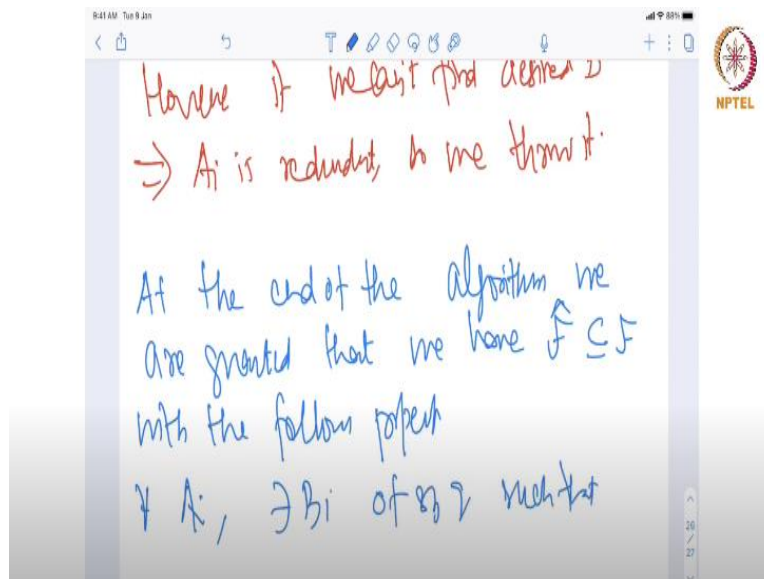 9:41 AM Tue 9 Jan
88%
T
NPTEL
However if we can't find desired D
⇒ Ai is redundant, so we throw it.
At the end of the algorithm we
are granted that we have F̂ ⊆ F
with the follow propert
∀ Ai, ∃ Bi of sz q such that
26
/
27